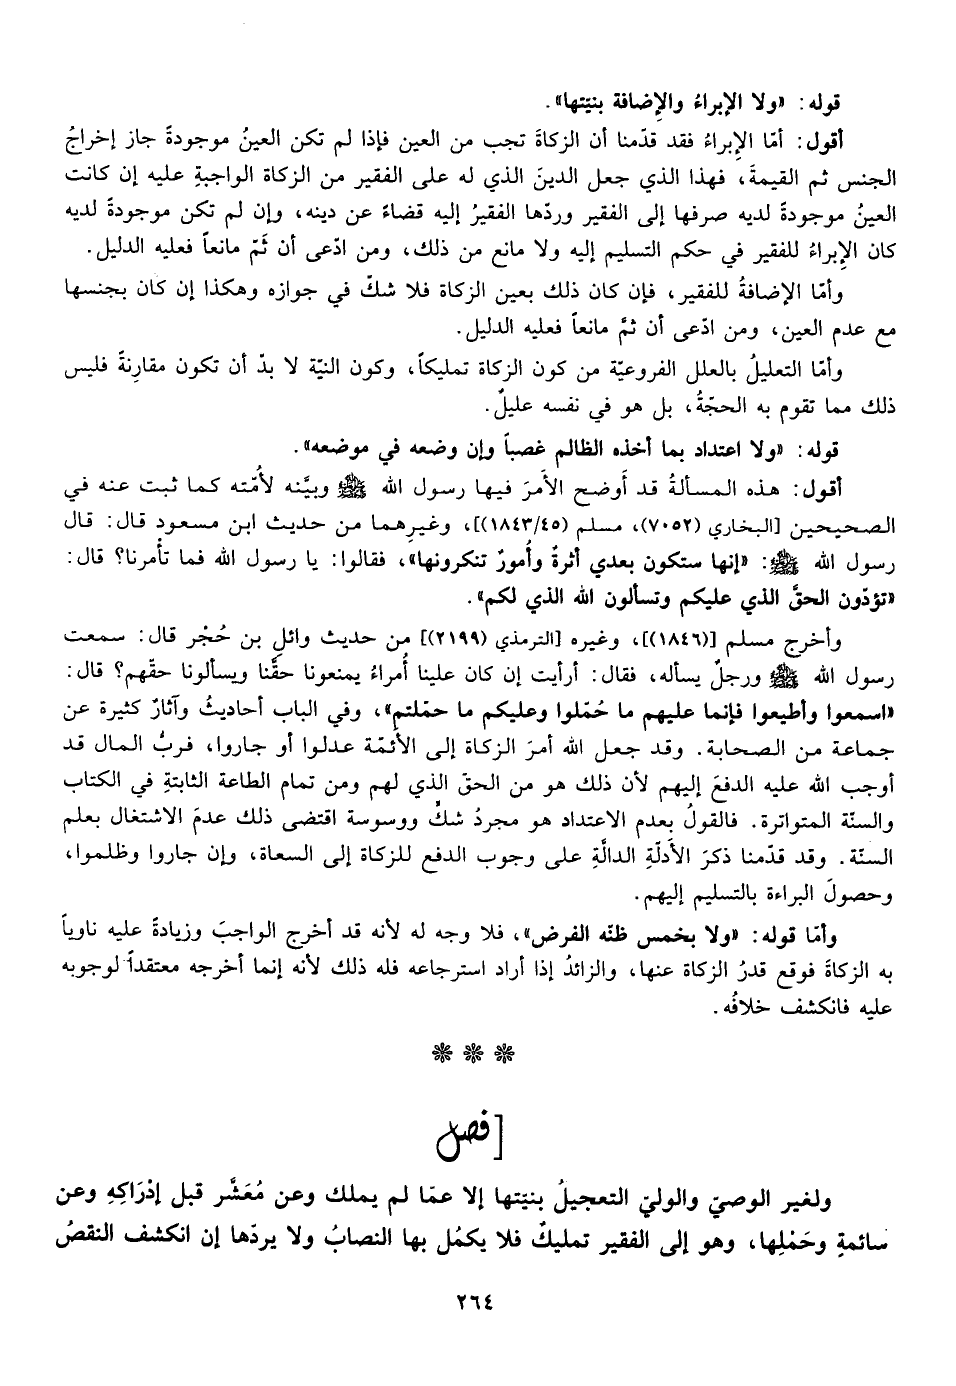 قوله: «ولا الإبراءُ والإضافة بنيّتها».
أقول: أمّا الإبراءُ فقد قدّمنا أن الزكاةَ تجب من العين فإذا لم تكن العينُ موجودةً جاز إخراجُ
الجنس ثم القيمةَ، فهذا الذي جعل الدينَ الذي له على الفقير من الزكاة الواجبةِ عليه إن كانت
العينُ موجودةً لديه صرفها إلى الفقير وردّها الفقيرُ إليه قضاءً عن دينه، وإن لم تكن موجودةً لديه
كان الإبراءُ للفقير في حكم التسليم إليه ولا مانع من ذلك، ومن ادّعى أن ثَمّ مانعاً فعليه الدليل.
وأمّا الإضافةُ للفقير، فإن كان ذلك بعين الزكاة فلا شكّ في جوازه وهكذا إن كان بجنسها
مع عدم العين، ومن ادّعى أن ثمَّ مانعاً فعليه الدليل.
وأمّا التعليلُ بالعلل الفروعيّة من كون الزكاة تمليكاً، وكون النيّة لا بدّ أن تكون مقارنةً فليس
ذلك مما تقوم به الحجّةُ، بل هو في نفسه عليلٌ.
قوله: «ولا اعتداد بما أخذه الظالم غصباً وإن وضعه في موضعه».
أقول: هذه المسألةُ قد أَوضح الأمَرَ فيها رسول الله ﷺ وبيَّنه لأُمّته كما ثبت عنه في
الصحيحين [البخاري (٧٠٥٢)، مسلم (١٨٤٣/٤٥)]، وغيرِهما من حديث ابن مسعود قال: قال
رسول الله ﷺ: «إنها ستكون بعدي أثرةٌ وأُمورٌ تنكرونها»، فقالوا: يا رسول الله فما تأْمرنا؟ قال:
«تؤدّون الحقَّ الذي عليكم وتسألون الله الذي لكم».
وأخرج مسلم [(١٨٤٦)]، وغيره [الترمذي (٢١٩٩)] من حديث وائلِ بن حُجْر قال: سمعت
رسول الله ﷺ ورجلٌ يسأله، فقال: أرأيت إن كان علينا أُمراءُ يمنعونا حقَّنا ويسألونا حقّهم؟ قال:
«اسمعوا وأطيعوا فإنما عليهم ما حُمّلوا وعليكم ما حمّلتم»، وفي الباب أحاديثُ وآثارٌ كثيرة عن
جماعة من الصحابة. وقد جعل الله أمرَ الزكاة إلى الأئمّة عدلوا أو جاروا، فربُّ المال قد
أوجب الله عليه الدفعَ إليهم لأن ذلك هو من الحقّ الذي لهم ومن تمام الطاعة الثابتةِ في الكتاب
والسنّة المتواترة. فالقولُ بعدم الاعتداد هو مجردُ شكٍّ ووسوسة اقتضى ذلك عدمَ الاشتغال بعلم
السنّة. وقد قدّمنا ذكرَ الأَدلّةِ الدالَّةِ على وجوب الدفع للزكاة إلى السعاة، وإن جاروا وظلموا،
وحصولَ البراءة بالتسليم إليهم.
وأمّا قوله: «ولا بخمس ظنّه الفرض»، فلا وجه له لأنه قد أخرج الواجبَ وزيادةً عليه ناوياً
به الزكاةَ فوقع قدرُ الزكاة عنها، والزائدُ إذا أراد استرجاعه فله ذلك لأنه إنما أخرجه معتقداً لوجوبه
عليه فانكشف خلافُه.
❊ ❊ ❊
[فصل
ولغير الوصيّ والوليّ التعجيلُ بنيّتها إلا عمّا لم يملك وعن مُعَشَّر قبل إدْرَاكِهِ وعن
سائمةٍ وحَمْلِها، وهو إلى الفقير تمليكٌ فلا يكمُل بها النصابُ ولا يردّها إن انكشف النقصُ
٢٦٤